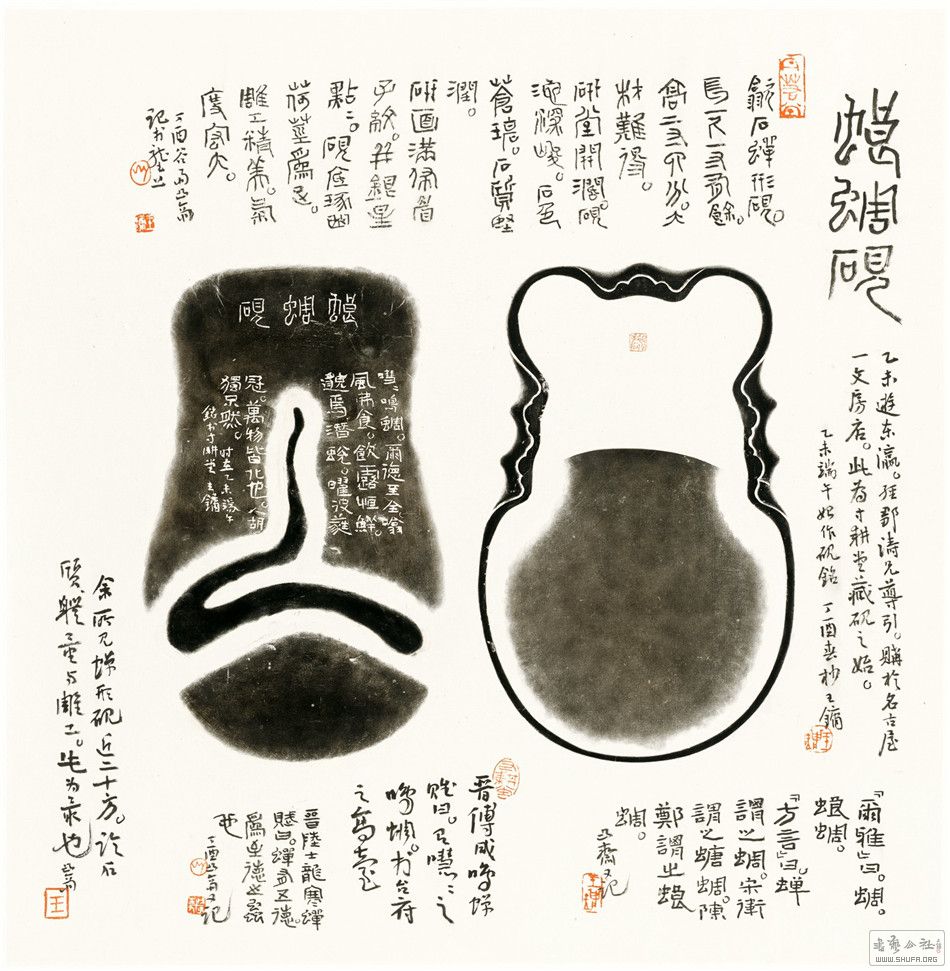 蜋蜩硯
歙石蟬形硯。
長一尺一寸有餘。
六寸六分。大
材難得。
研堂開濶。硯
池深峻。石色
蒼碧。石質堅
潤。
研面滿佈眉
子紋。并銀星
點點。硯底琢
荷莖爲足。
雕工精美。氣
度宏大。
丁酉谷雨
記於
乙未遊东瀛。經郭涛兄導引。購於名古屋
一文房店。此為寸耕堂藏硯之始。
乙未端午始作硯銘 丁酉春杪王鏞
蜋蜩硯
嘒嘒鳴蜩。爾德至全。噏
風弗食。飲露恒鮮。
焉潛蛻。曜
冠。萬物皆化也。人胡
獨不然。
時在乙未端午
銘於寸耕堂王鏞
『爾雅』曰。蜩。
蜋蜩。
『方言』曰。蝉
謂之蜩。宋衛
謂之螗蜩。陳
鄭謂之蜋
蜩。
又齋又記
晉傅咸鳴蜩
賦曰。有嘒嘒之
鳴蜩。於台府
之高槐
晉陸士龍寒蟬
賦曰。蟬有五德
爲至德之蟲
也
丁酉又齋又記
余所見蟬形硯近二十方。論石
質體量與雕工。此為最也 又齋
WWW.SHUFA.ORG